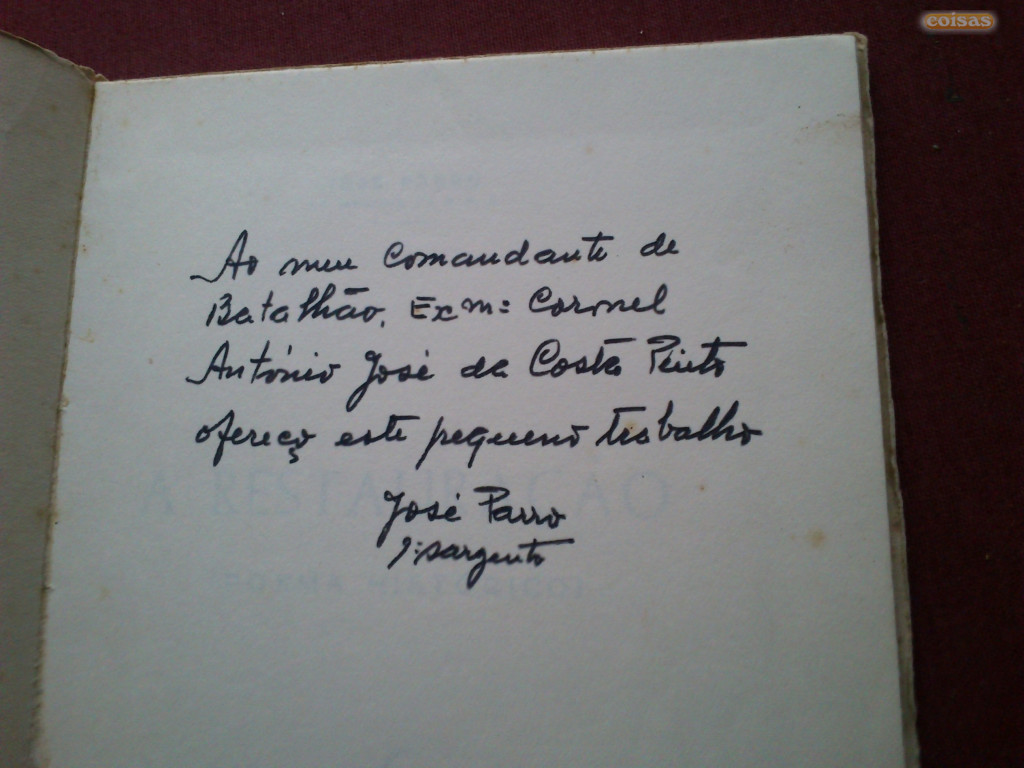 coisas
Ao meu Comandante de
Batalhão, Exmº Coronel
António José da Costa Pinto
ofereço este pequeno trabalho
José Parro
1º sargento
A RESTAURAÇÃO
POEMA HISTÓRICO